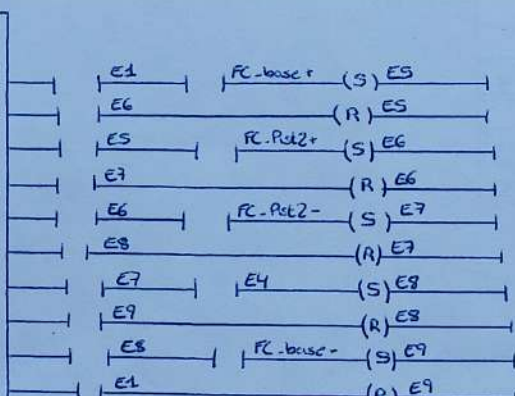 E1 FC-base+ (S) E5
E6 (R) E5
E5 FC-Pst2+ (S) E6
E7 (R) E6
E6 FC-Pst2- (S) E7
E8 (R) E7
E7 E4 (S) E8
E9 (R) E8
E8 FC-base- (S) E9
E1 (R) E9